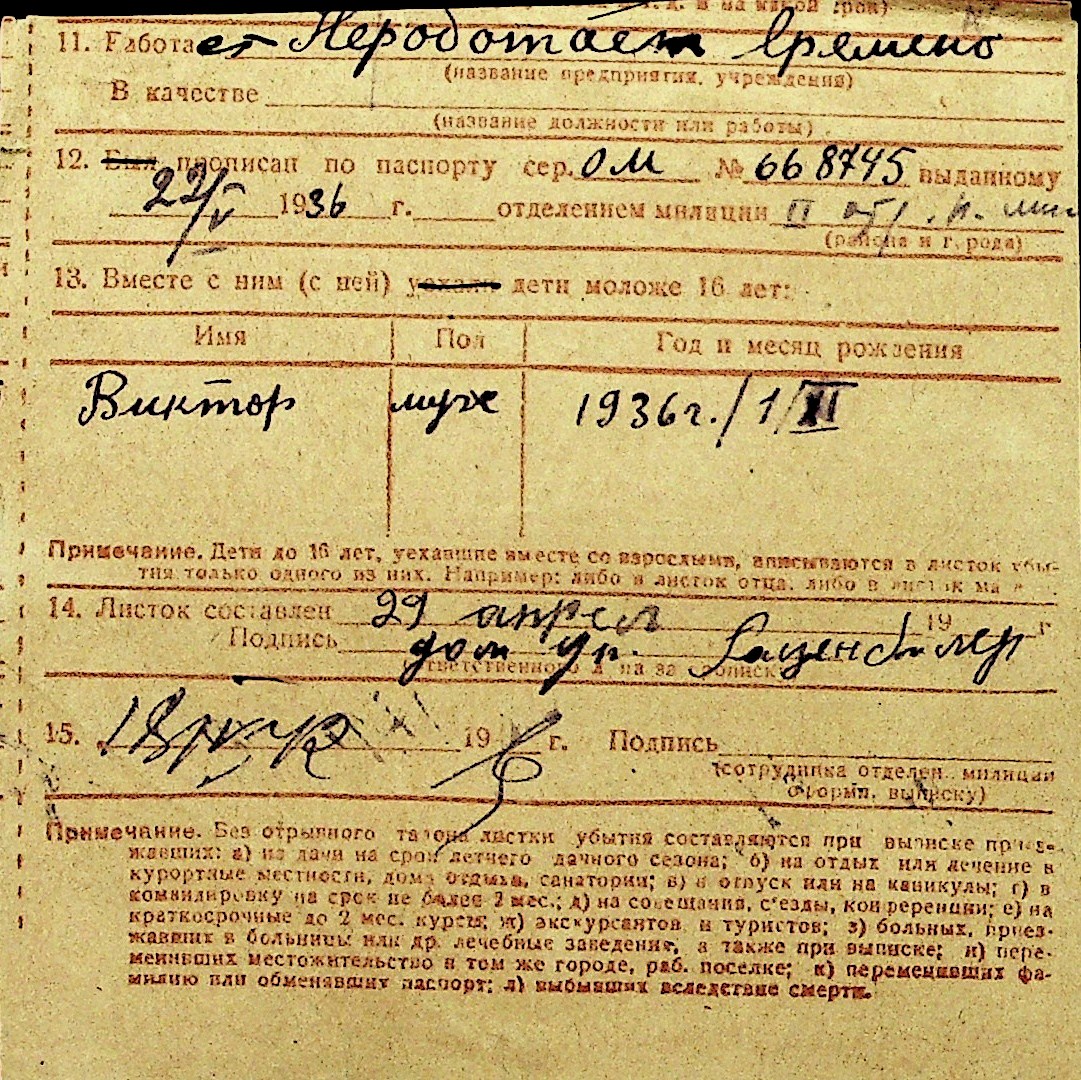 и на какой срок)
11. Работает Неработает времено
(название предприятия, учреждения)
В качестве
(название должности или работы)
12. Был прописан по паспорту сер. ОМ № 668745 выданному
22/V 1936 г. отделением милиции II
(района и города)
13. Вместе с ним (с ней) уехали дети моложе 16 лет:
Имя Пол Год и месяц рождения
Виктор муж 1936 г./1/XII
Примечание. Дети до 16 лет, уехавшие вместе со взрослыми, вписываются в листок убы-
тия только одного из них. Например: либо в листок отца, либо в листок ма
14. Листок составлен 29 апрел 19 г
Подпись дом уп.
(ответственного на за
15. 19 г. Подпись
(сотрудника отделен. милиции
оформи. выписку)
Примечание. Без отрывного талона листки убытия составляются при выписке приез-
жавших: а) на дачи на срок летнего дачного сезона; б) на отдых или лечение в
курортные местности, дома отдыха, санатории; в) в отпуск или на каникулы; г) в
командировку на срок не более 2 мес.; д) на совещания, с'езды, конференции; е) на
краткосрочные до 2 мес. курсы; ж) экскурсантов и туристов; з) больных, приез-
жавших в больницы или др. лечебные заведения, а также при выписке; и) пере-
менивших местожительство в том же городе, раб. поселке; к) переменивших фа-
милию или обменявших паспорт; л) выбывших вследствие смерти.